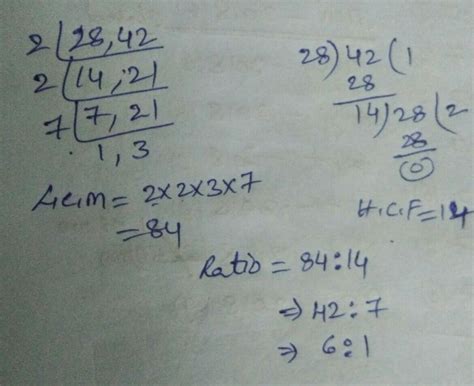 2 | 28, 42
2 | 14, 21
7 | 7, 21
1, 3
L.C.M = 2×2×3×7
= 84
28) 42 (1
28
14) 28 (2
28
0
H.C.F = 14
Ratio = 84:14
⇒ 42:7
⇒ 6:1